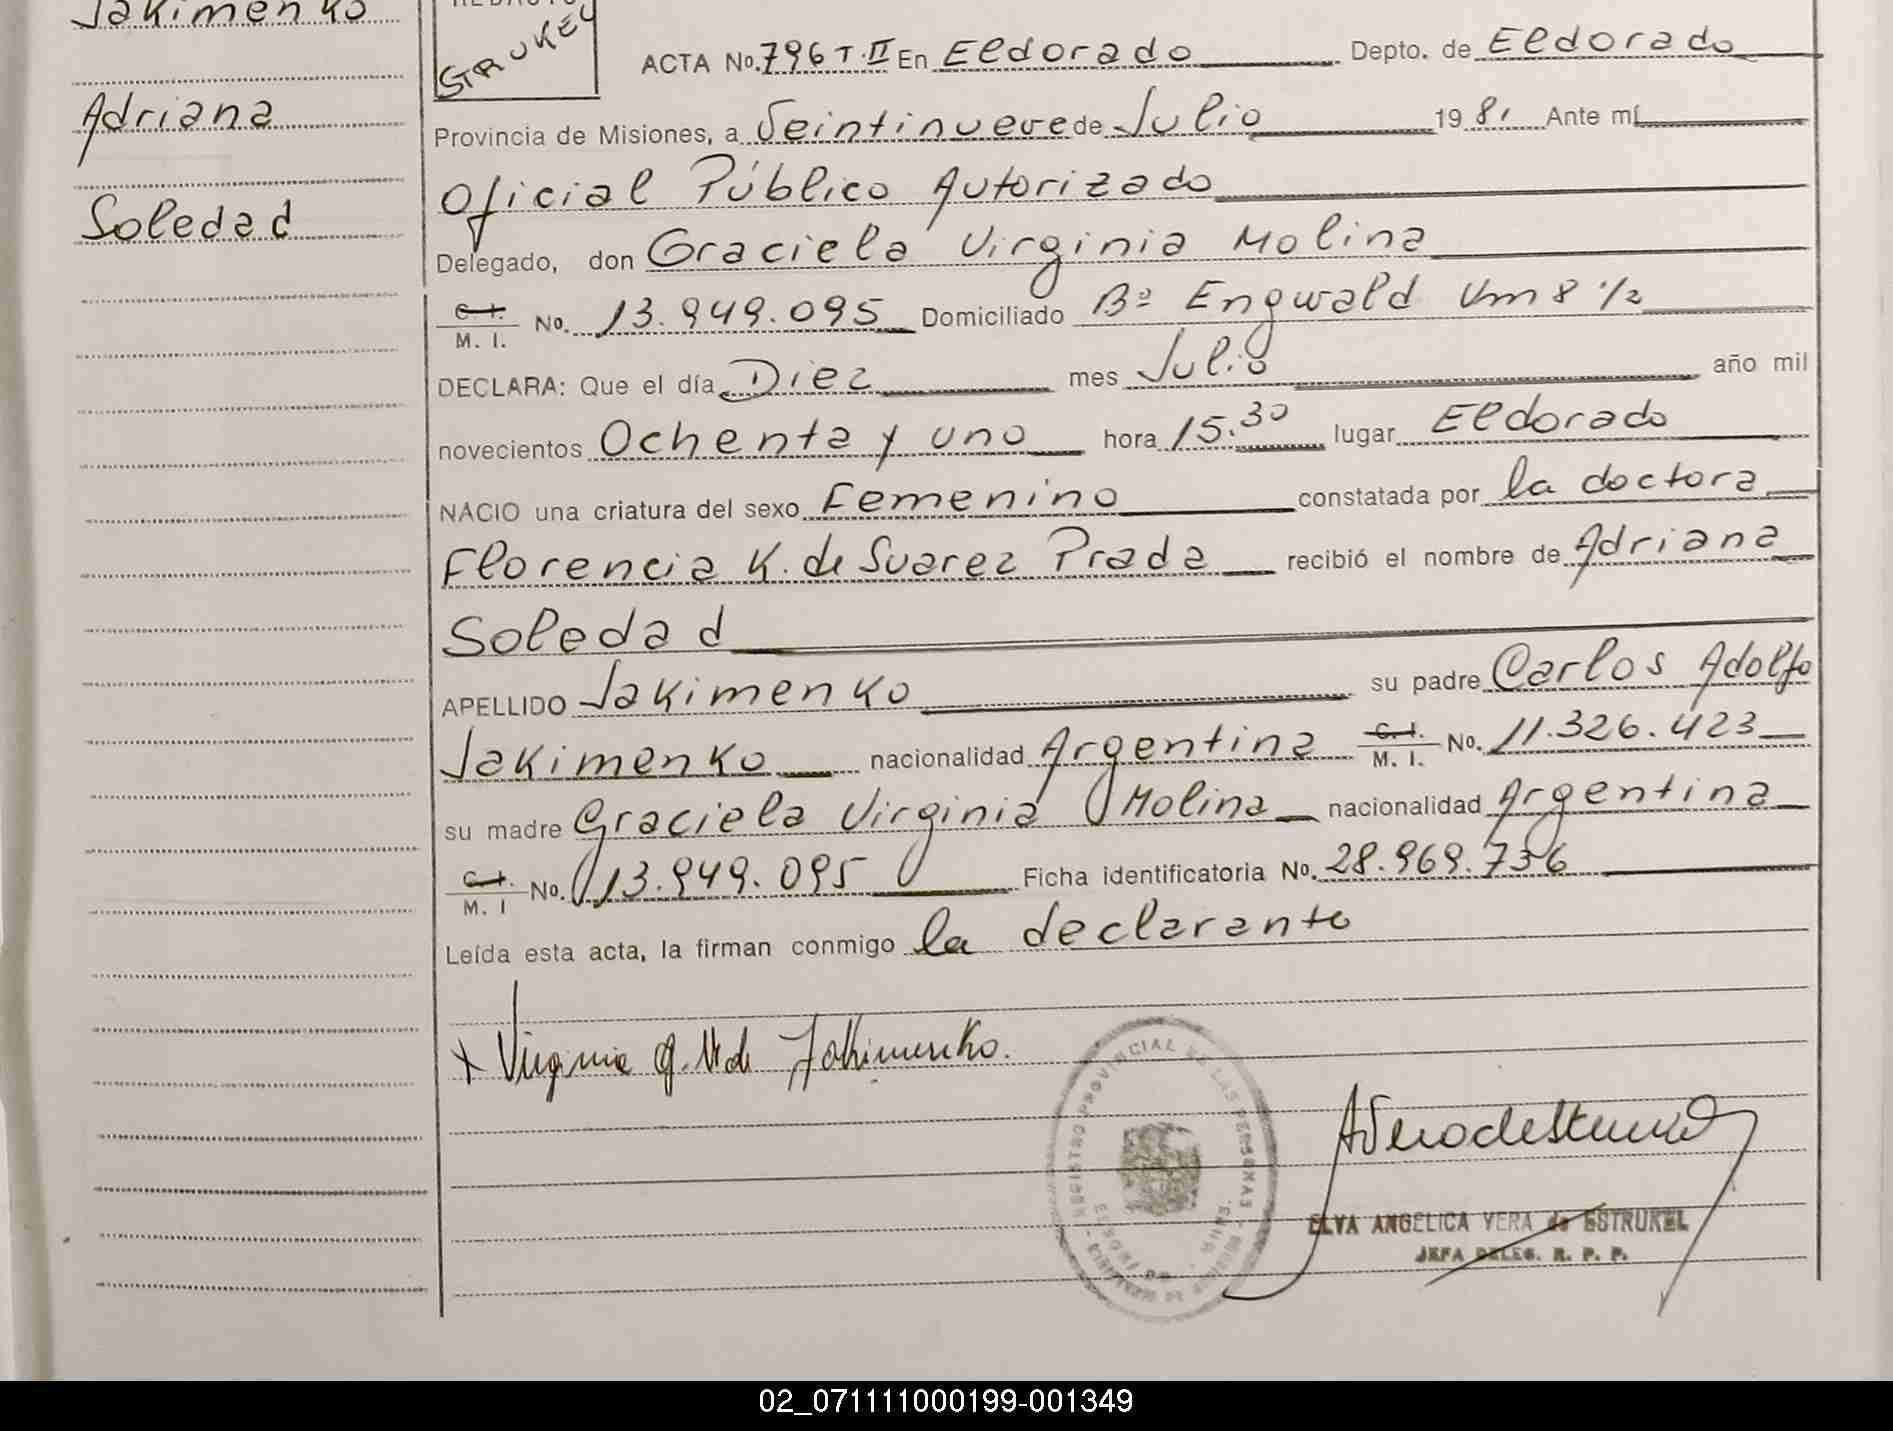 Jakimenko
Adriana
Soledad
STRUKEL
ACTA No. 796 T. II En Eldorado Depto. de Eldorado
Provincia de Misiones, a Veintinueve de Julio 1981 Ante mí
Oficial Público Autorizado
Delegado, don Graciela Virginia Molina
C. I. / M. I. No. 13.949.095 Domiciliado Bº Engwald Km 8 1/2
DECLARA: Que el día Diez mes Julio año mil
novecientos Ochenta y uno hora 15.30 lugar Eldorado
NACIO una criatura del sexo Femenino constatada por la doctora
Florencia K. de Suarez Prada recibió el nombre de Adriana
Soledad
APELLIDO Jakimenko su padre Carlos Adolfo
Jakimenko nacionalidad Argentina C. I. / M. I. No. 11.326.423
su madre Graciela Virginia Molina nacionalidad Argentina
C. I. / M. I No. 13.949.095 Ficha identificatoria No. 28.969.736
Leída esta acta, la firman conmigo la declarante
x Virginia G. M de Jakimenko.
REGISTRO PROVINCIAL DE LAS PERSONAS
ELDORADO
ELVA ANGELICA VERA de ESTRUKEL
JEFA DELEG. R. P. P.
02_071111000199-001349